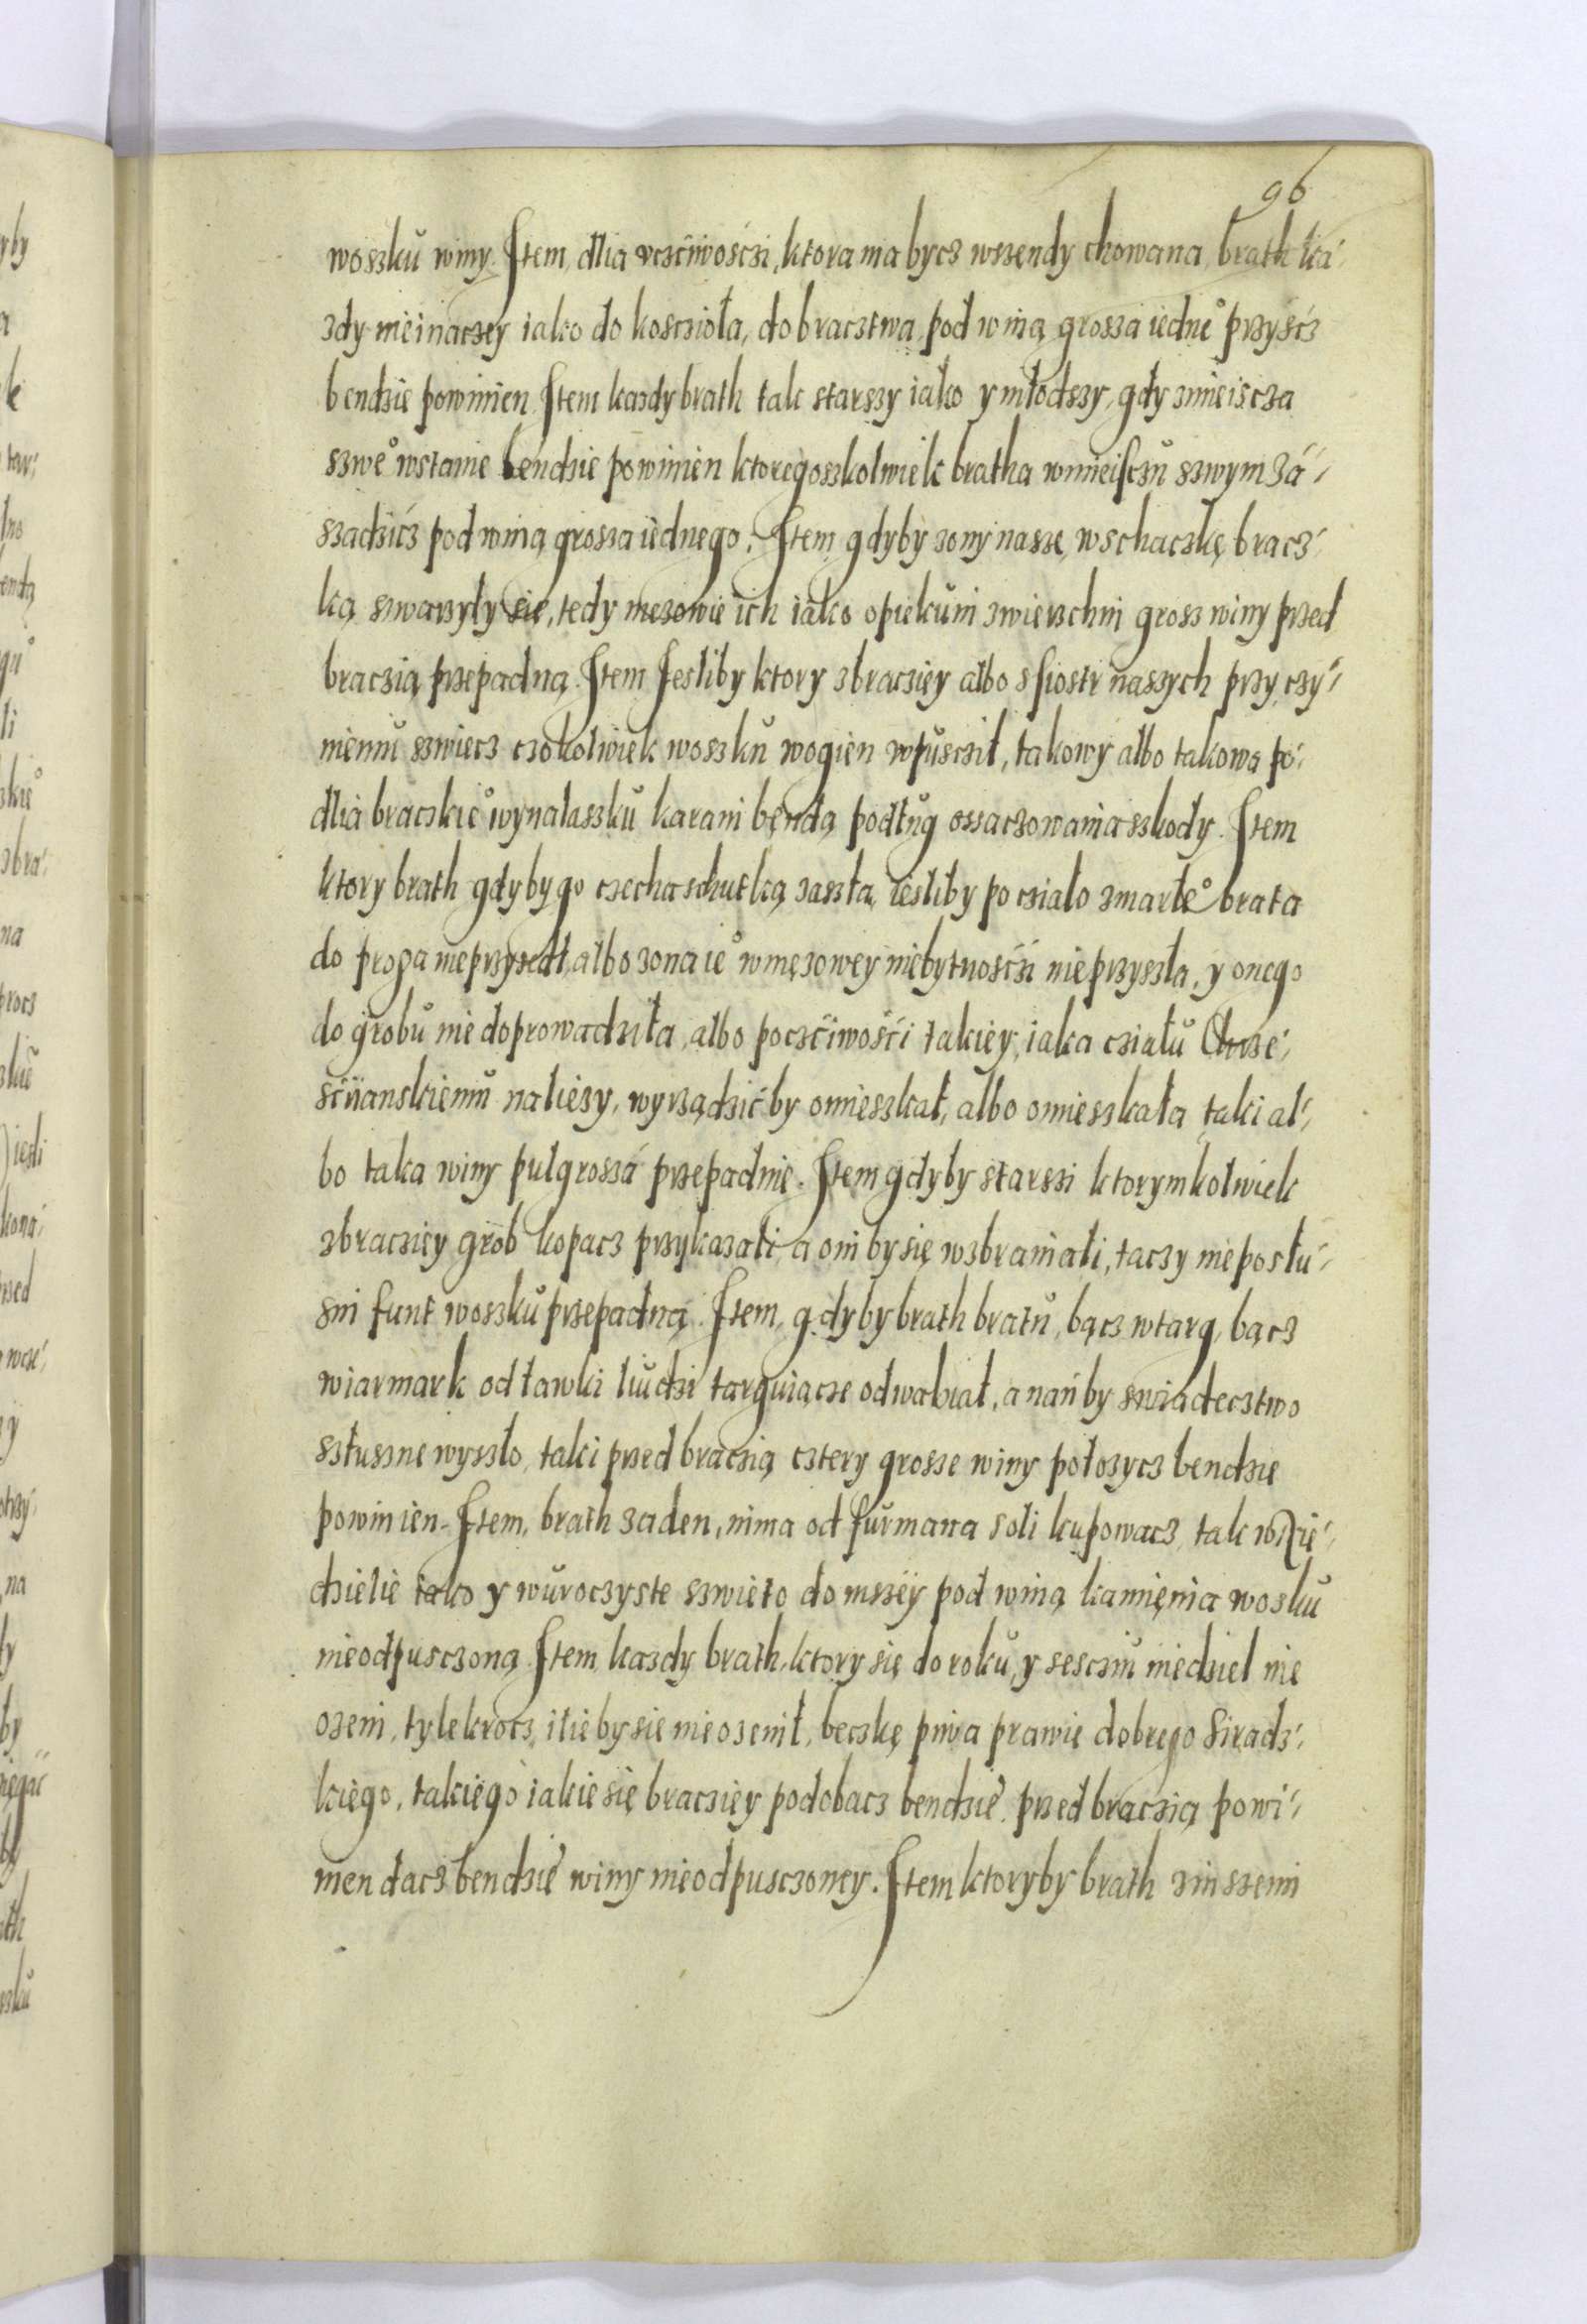 96
woszku winy. Item, dlia vczciwosczi, ktora ma bycz wszendy chowana, brath ka-
zdy nieinaczey iako do koscziola, do braczstwa, pod winą grosza iedne° przyscz
bendzie powinien. Item kazdy brath tak starszy iako y młodszy, gdy zmieiscza
szwe° wstanie bendzie powinien ktoregoszkolwiek bratha wmieisczu szwym za-
szadzicz pod winą grosza iednego. Item gdyby zony nasze, wschaczkę bracz-
ką szwarzyly się, tedy mezowie ich iako opiekuni zwierzchni grosz winy przed
braczią przepadną. Item Iesliby ktory zbracziey albo s siostr naszych przy czy-
nieniu szwiecz czokolwiek woszku wogien wpusczil, takowy albo takowa po-
dlia braczkie° wynalaszku karani bendą podług oszaczowania szkody. Item
ktory brath gdyby go czecha schutką zaszła, iesliby po czialo zmarłe° brata
do proga nieprzyszedł, albo zona ie° wmęzowey niebytnosczi nieprzyszla, y onego
do grobu nie doprowadziła, albo poczciwosci takiey, iaka cziału Chrze-
sciianskiemu naliezy, wyrządzić by omieszkał, albo omieszkała, taki al-
bo taka winy pulgrosza przepadnie. Item gdyby starszi ktorymkolwiek
zbracziey grob kopacz przykazali, a oni by się wzbraniali, taczy nieposłu-
sni funt woszku przepadną. Item, gdyby brath bratu, bącz wtarg, bącz
wiarmark od ławki liudzi targuiącze odwabiał, a nań by swiadecztwo
szłuszne wyszło, taki przed braczią cztery grosze winy połozycz bendzie
powinien. Item, brath zaden, nima od furmana soli kupowacz, tak w Nie-
dzielie iako y wuroczyste szwięto do mszey pod winą kamięnia wosku
nieodpusczoną. Item kazdy brath, ktory się do roku, y sescziu niedziel nie
ozeni, tylekrocz, ilie by się nieozenił, beczkę piwa prawie dobrego Siradz-
kiego, takiego iakie się bracziey podobacz bendzie, przed braczią powi-
nien dacz bendzie winy nieodpusczoney. Item ktoryby brath zinszemi